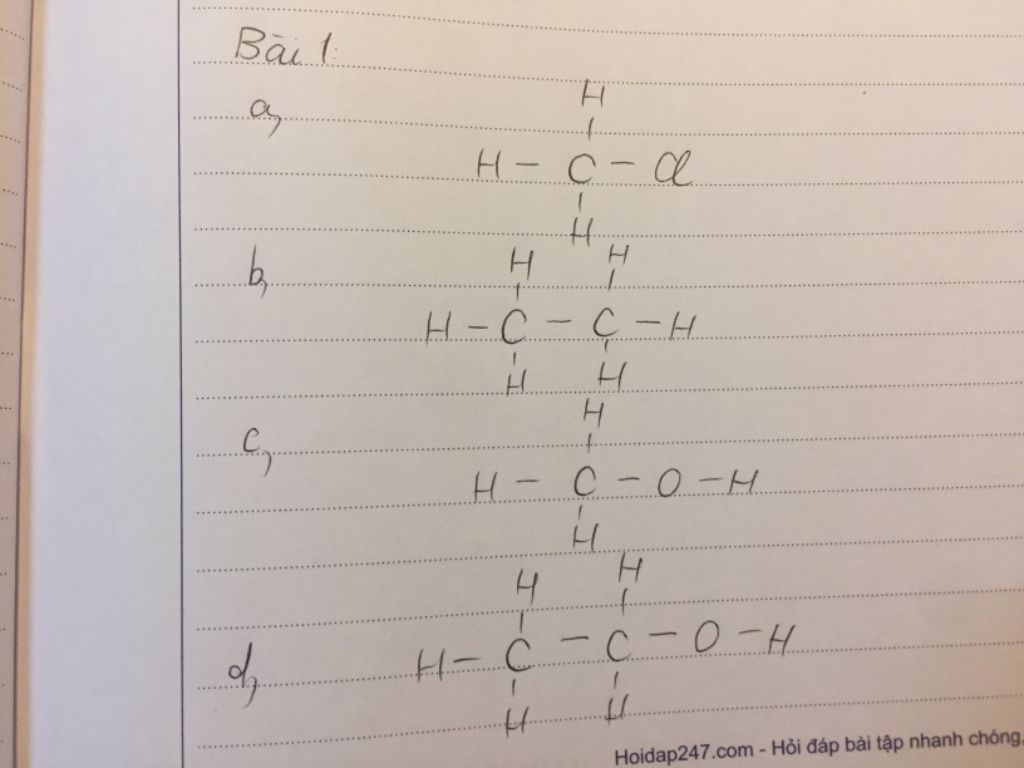 Bài 1:
a,
H
H - C - Cl
H
b,
H H
H - C - C - H
H H
c,
H
H - C - O - H
H
d,
H H
H - C - C - O - H
H H
Hoidap247.com - Hỏi đáp bài tập nhanh chóng,